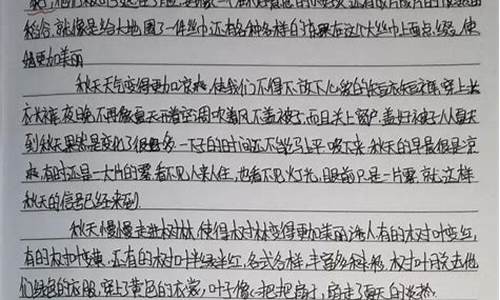 稻谷,就像是给大地围了一件丝巾还有各种各样的
它更加美丽
秋天天气变得更加凉爽,使我们不得不放下心爱的短衣短裤,穿上长
衣长裤,夜晚不再像夏天开着空调吹着风不盖被子,而且关上窗户,盖好被子,从夏天
到秋天果然是变化了很多一下子的时间还不能马上平 秋天的早晨很是凉
爽,有时还是一大片的雾,看不见人来人往,也看不见灯光,眼前只是一片雾,就这样
秋天的信号已经来到
秋天慢慢走进树林,使得树林变得更加美丽诱人有的树叶变红,
有的树叶变黄,还有的树叶半绿半红,各式各样,丰富多彩,树叶脱去他
们绿色的衣服,穿上了黄色的衣裳,叶子像一把把扇子,扇走了夏天的炎热